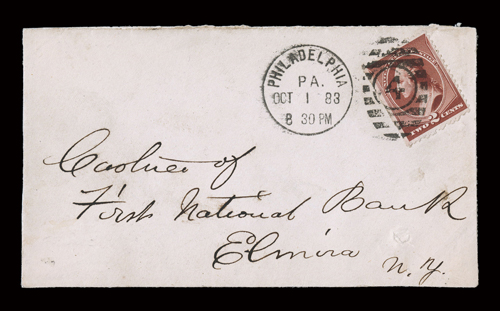 PHILADELPHIA
PA.
OCT 1 83
8 30 PM
4
TWO 2 CENTS
Cashier of
First National Bank
Elmira
N.Y.